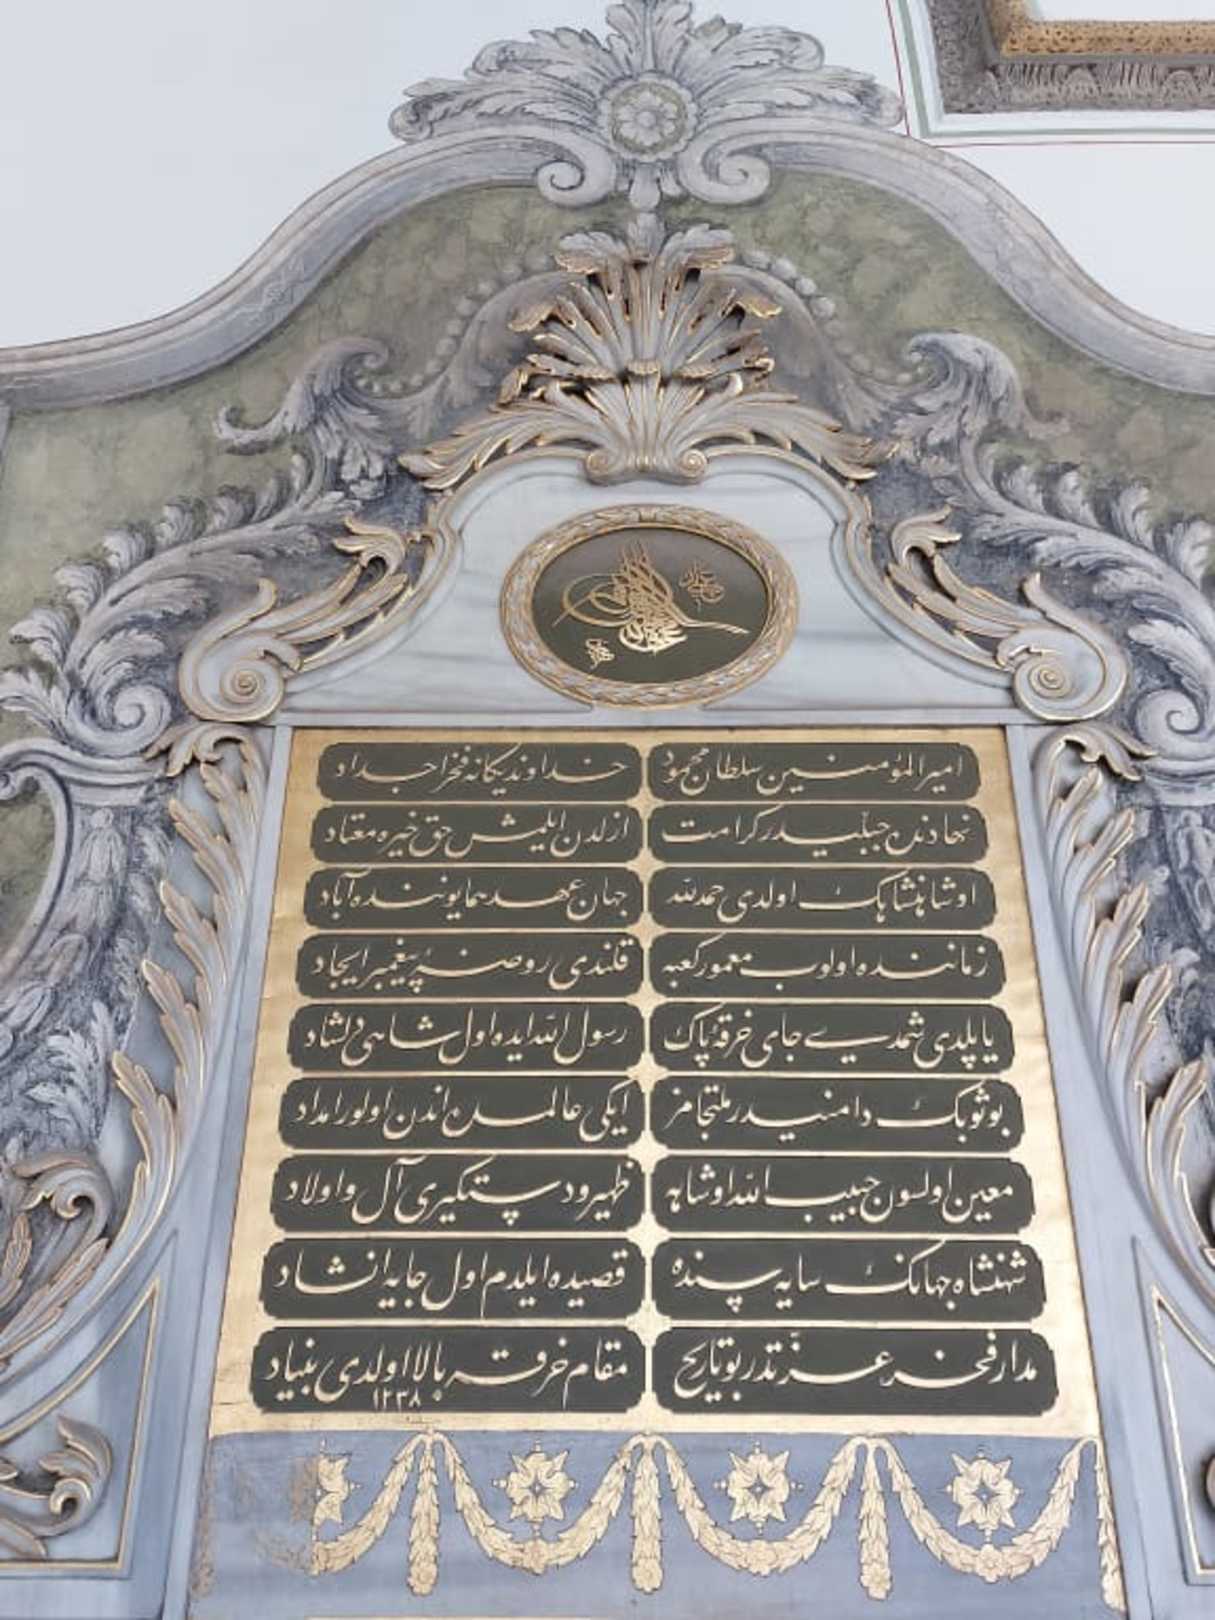 امير المؤمنين سلطان محمود خداونديكانه فخر اجداد
نهادندن جبليدر كرامت ازلدن ايلمش حق خيره معتاد
او شاهنشاهك اولدى حمدلله جهان عهد همايوننده آباد
زماننده اولوب معمور كعبه قلندى روضهٔ پيغمبر ايجاد
ياپلدى شمديے جاى خرقهٔ پاك رسول الله ايده اول شاهى دلشاد
بو ثوبك دامنيدر ملتجامز ايكى عالمده اندن اولور امداد
معين اولسون حبيب الله او شاهه ظهير و دستكيرى آل و اولاد
شهنشاه جهانك سايه سنده قصيده ايلدم اول جايه انشاد
مدار فخر عزتدر بو تاريخ مقام خرقه بالا اولدى بنياد
١٢٣٨